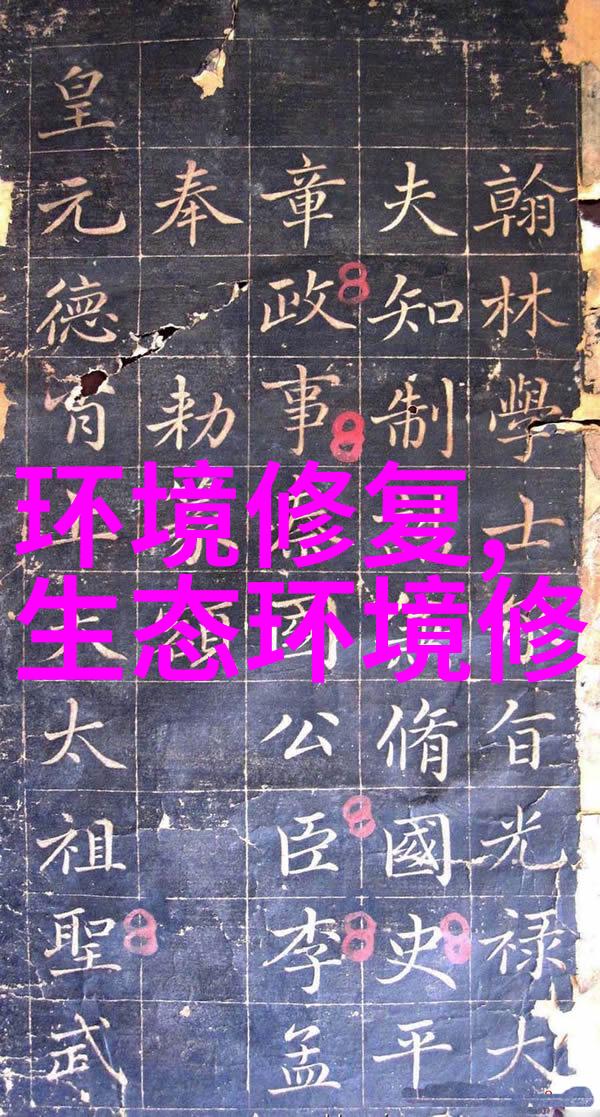 环境修复,
生态环境修
翰林學士旨光禄大
夫知制脩國史平
章政事國公臣李孟
奉勅
皇元德太祖聖武